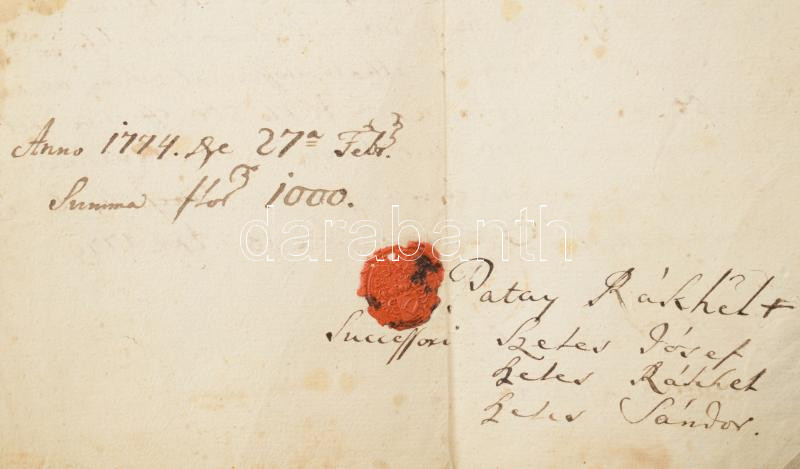 Anno 1774. De 27ª Febr.
Summa flor 1000.
darabanth
Patay Rákhel +
Successori Szeles Jósef
Szeles Rákhel
Szeles Sándor.